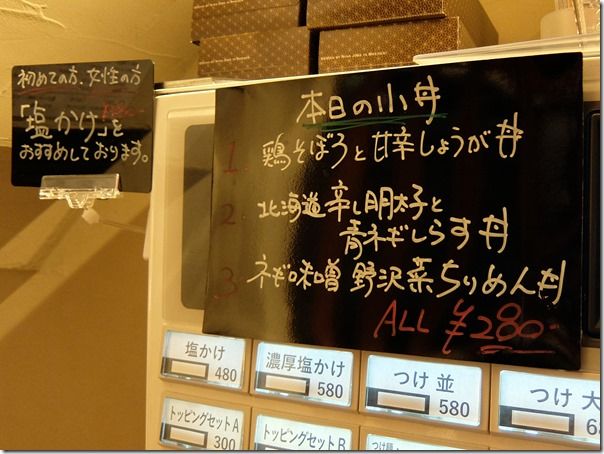 初めての方、女性の方
「塩かけ」を
おすすめしております。
本日の小丼
1. 鶏そぼろと甘辛しょうが丼
2. 北海道辛し明太子と
青ネギしらす丼
3 ネギ味噌野沢菜ちりめん丼
ALL ¥280-
塩かけ
480
濃厚塩かけ
580
つけ 並
580
つけ 大
トッピングセットA
300
トッピングセットB